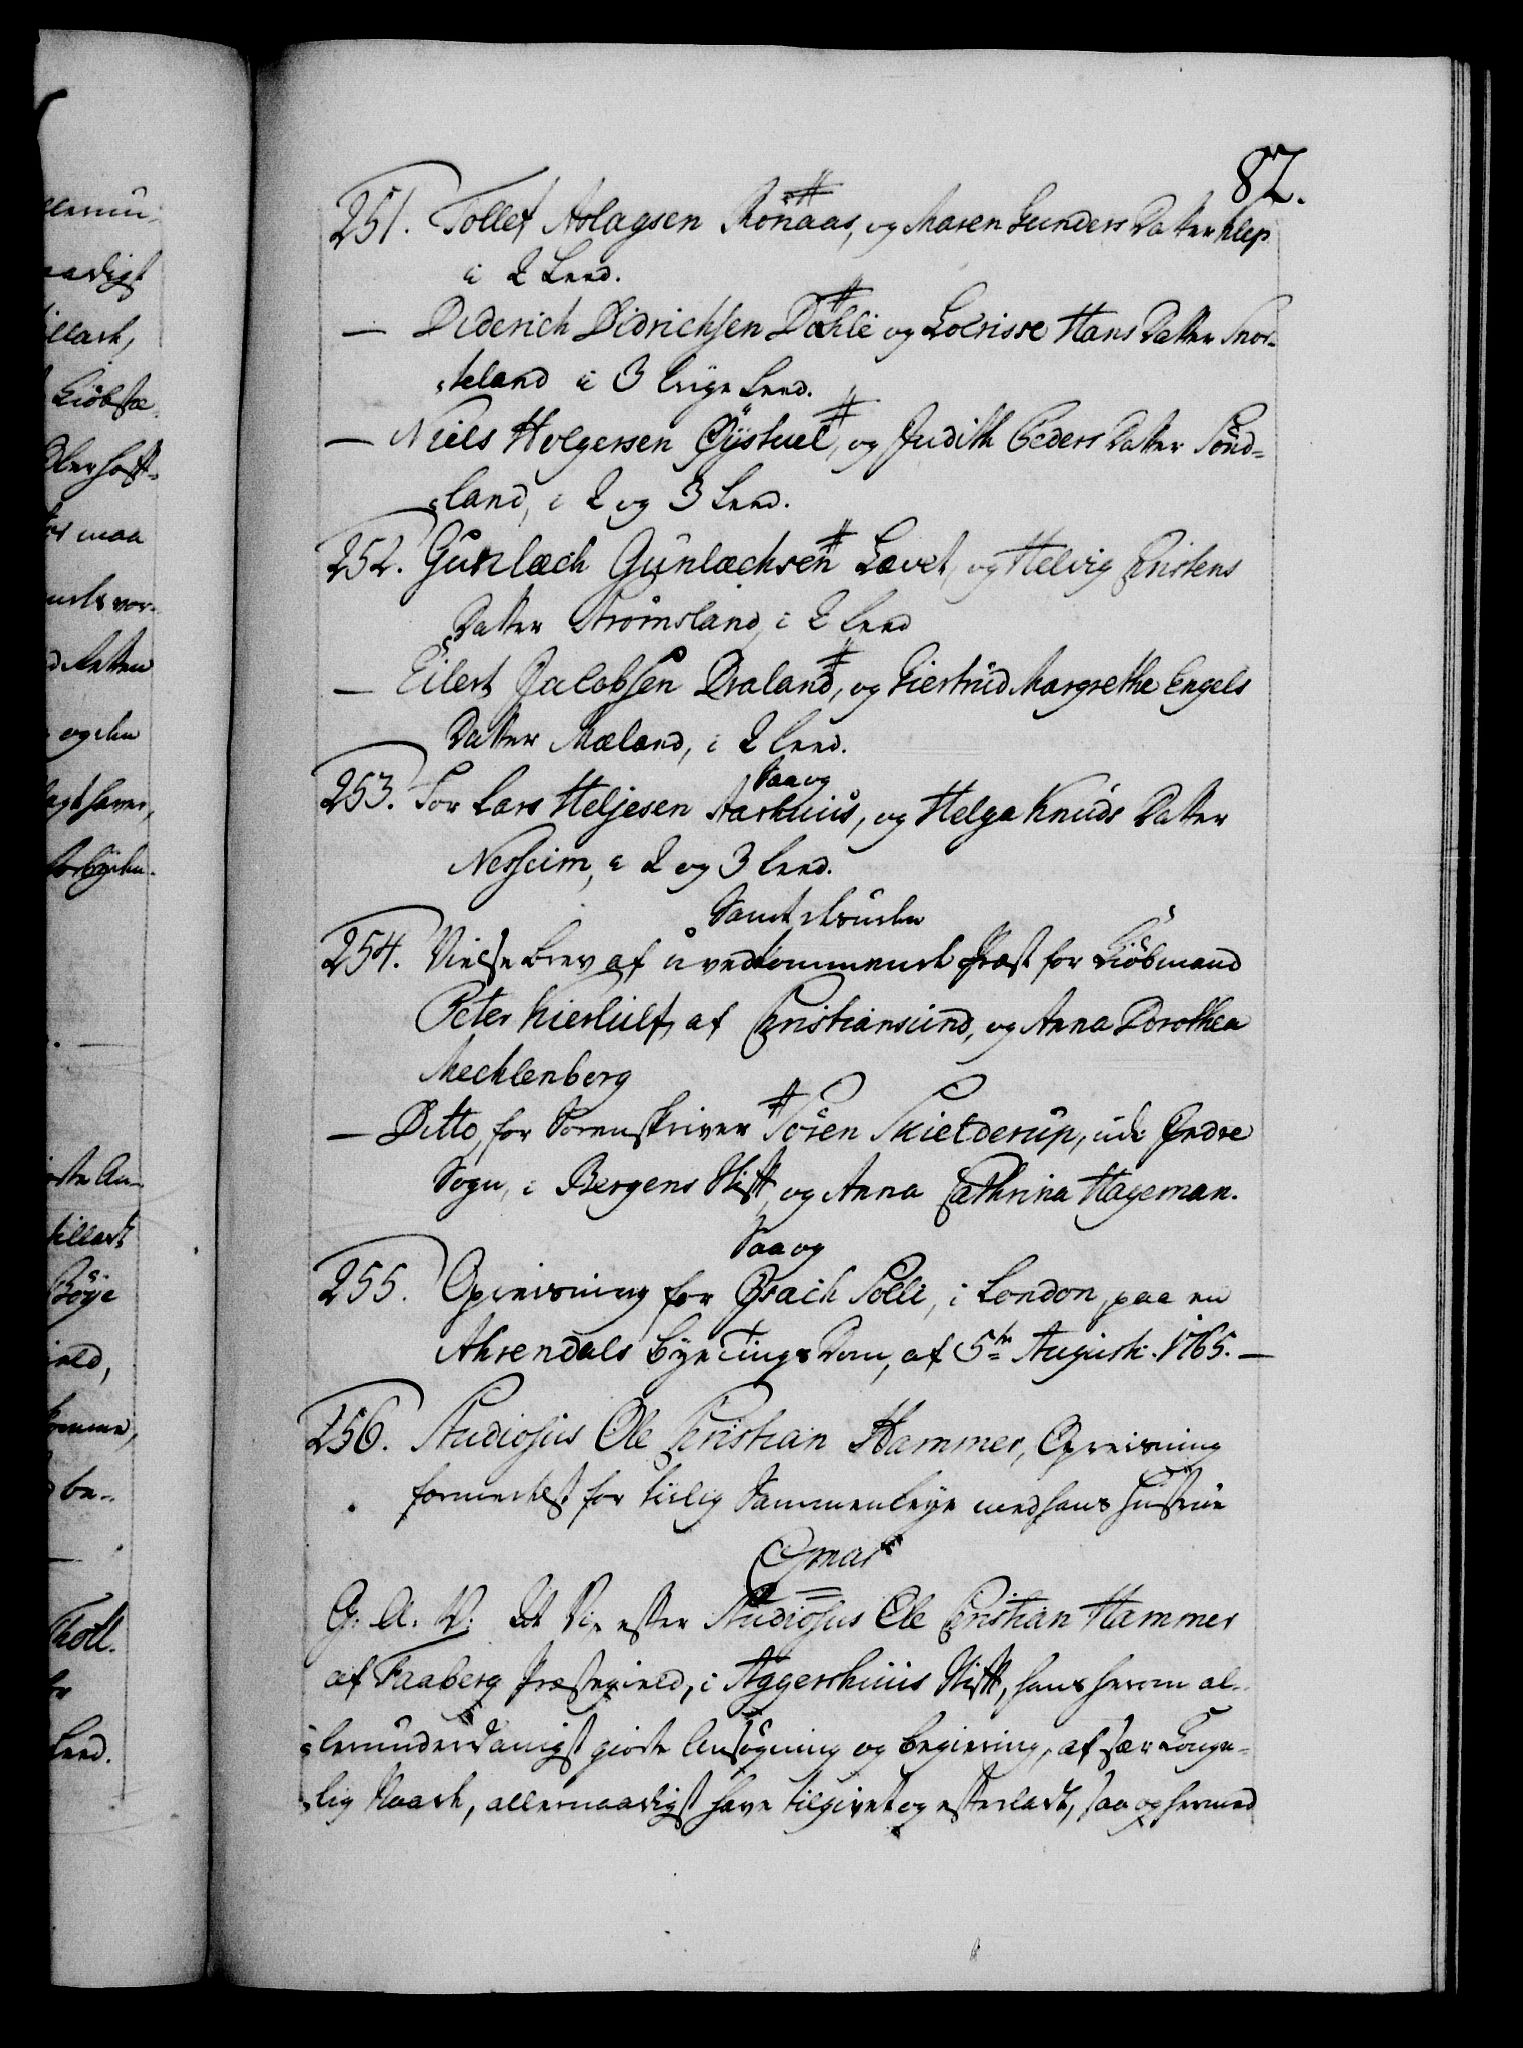 87.
251. Tollef Aslagsen Rönaas, og Maren Gunders Datter Klep
i 2 Leed.
— Diderich Didrichsen Dahle og Lorisse Hans Datter Snor-
-teland i 3 lige Leed.
— Niels Holgersen Öÿstuel, og Judith Peders Datter Sönd-
-land, i 2 og 3 Leed.
252. Gunlach Gunlachsen Lævet, og Helvig Cristens
Datter Strömsland, i 2 Leed
— Eilert Jacobsen Draland, og Giertrud Margrethe Engels
Datter Mæland, i 2 Leed.
Saa og
253. For Lars Heljesen Aarhuus, og Helga Knuds Datter
Nesheim, i 2 og 3 Leed.
Samt desuden
254. Vielse brev af uvedkommende Præst for Kiöbmand
Peter Kierulf, af Christiansund, og Anna Dorothea
Mechlenberg
— Ditto, for Sorenskriver Sören Skielderup, udi Indre
Sogn, i Bergens Stift, og Anna Cathrina Hageman.
Saa og
255. Opreisning for Isach Solli, i London, paa en
Ahrendals bye Tings Dom, af 5te Augusti. 1765. —
256. Studiosus Ole Cristian Hammer, Opreisning
formedelst for tiilig Sammenleye med hans Hustrue
G: A: V: At Vi, efter Studiosus Ole Cristian Hammer
af Faaberg Præstegield, i Aggershuus Stift, hans herom al-
-lerunderdanigst giorte Ansögning og begiering, af sær Konge-
-lig Naade, allernaadigst have tilgivet og efterladt, saa og hermed
llernu-
aadigst
illadt,
Kiöbstæ
Oberhoff-
maa
og den
Böye
ield,
be-
Leed.